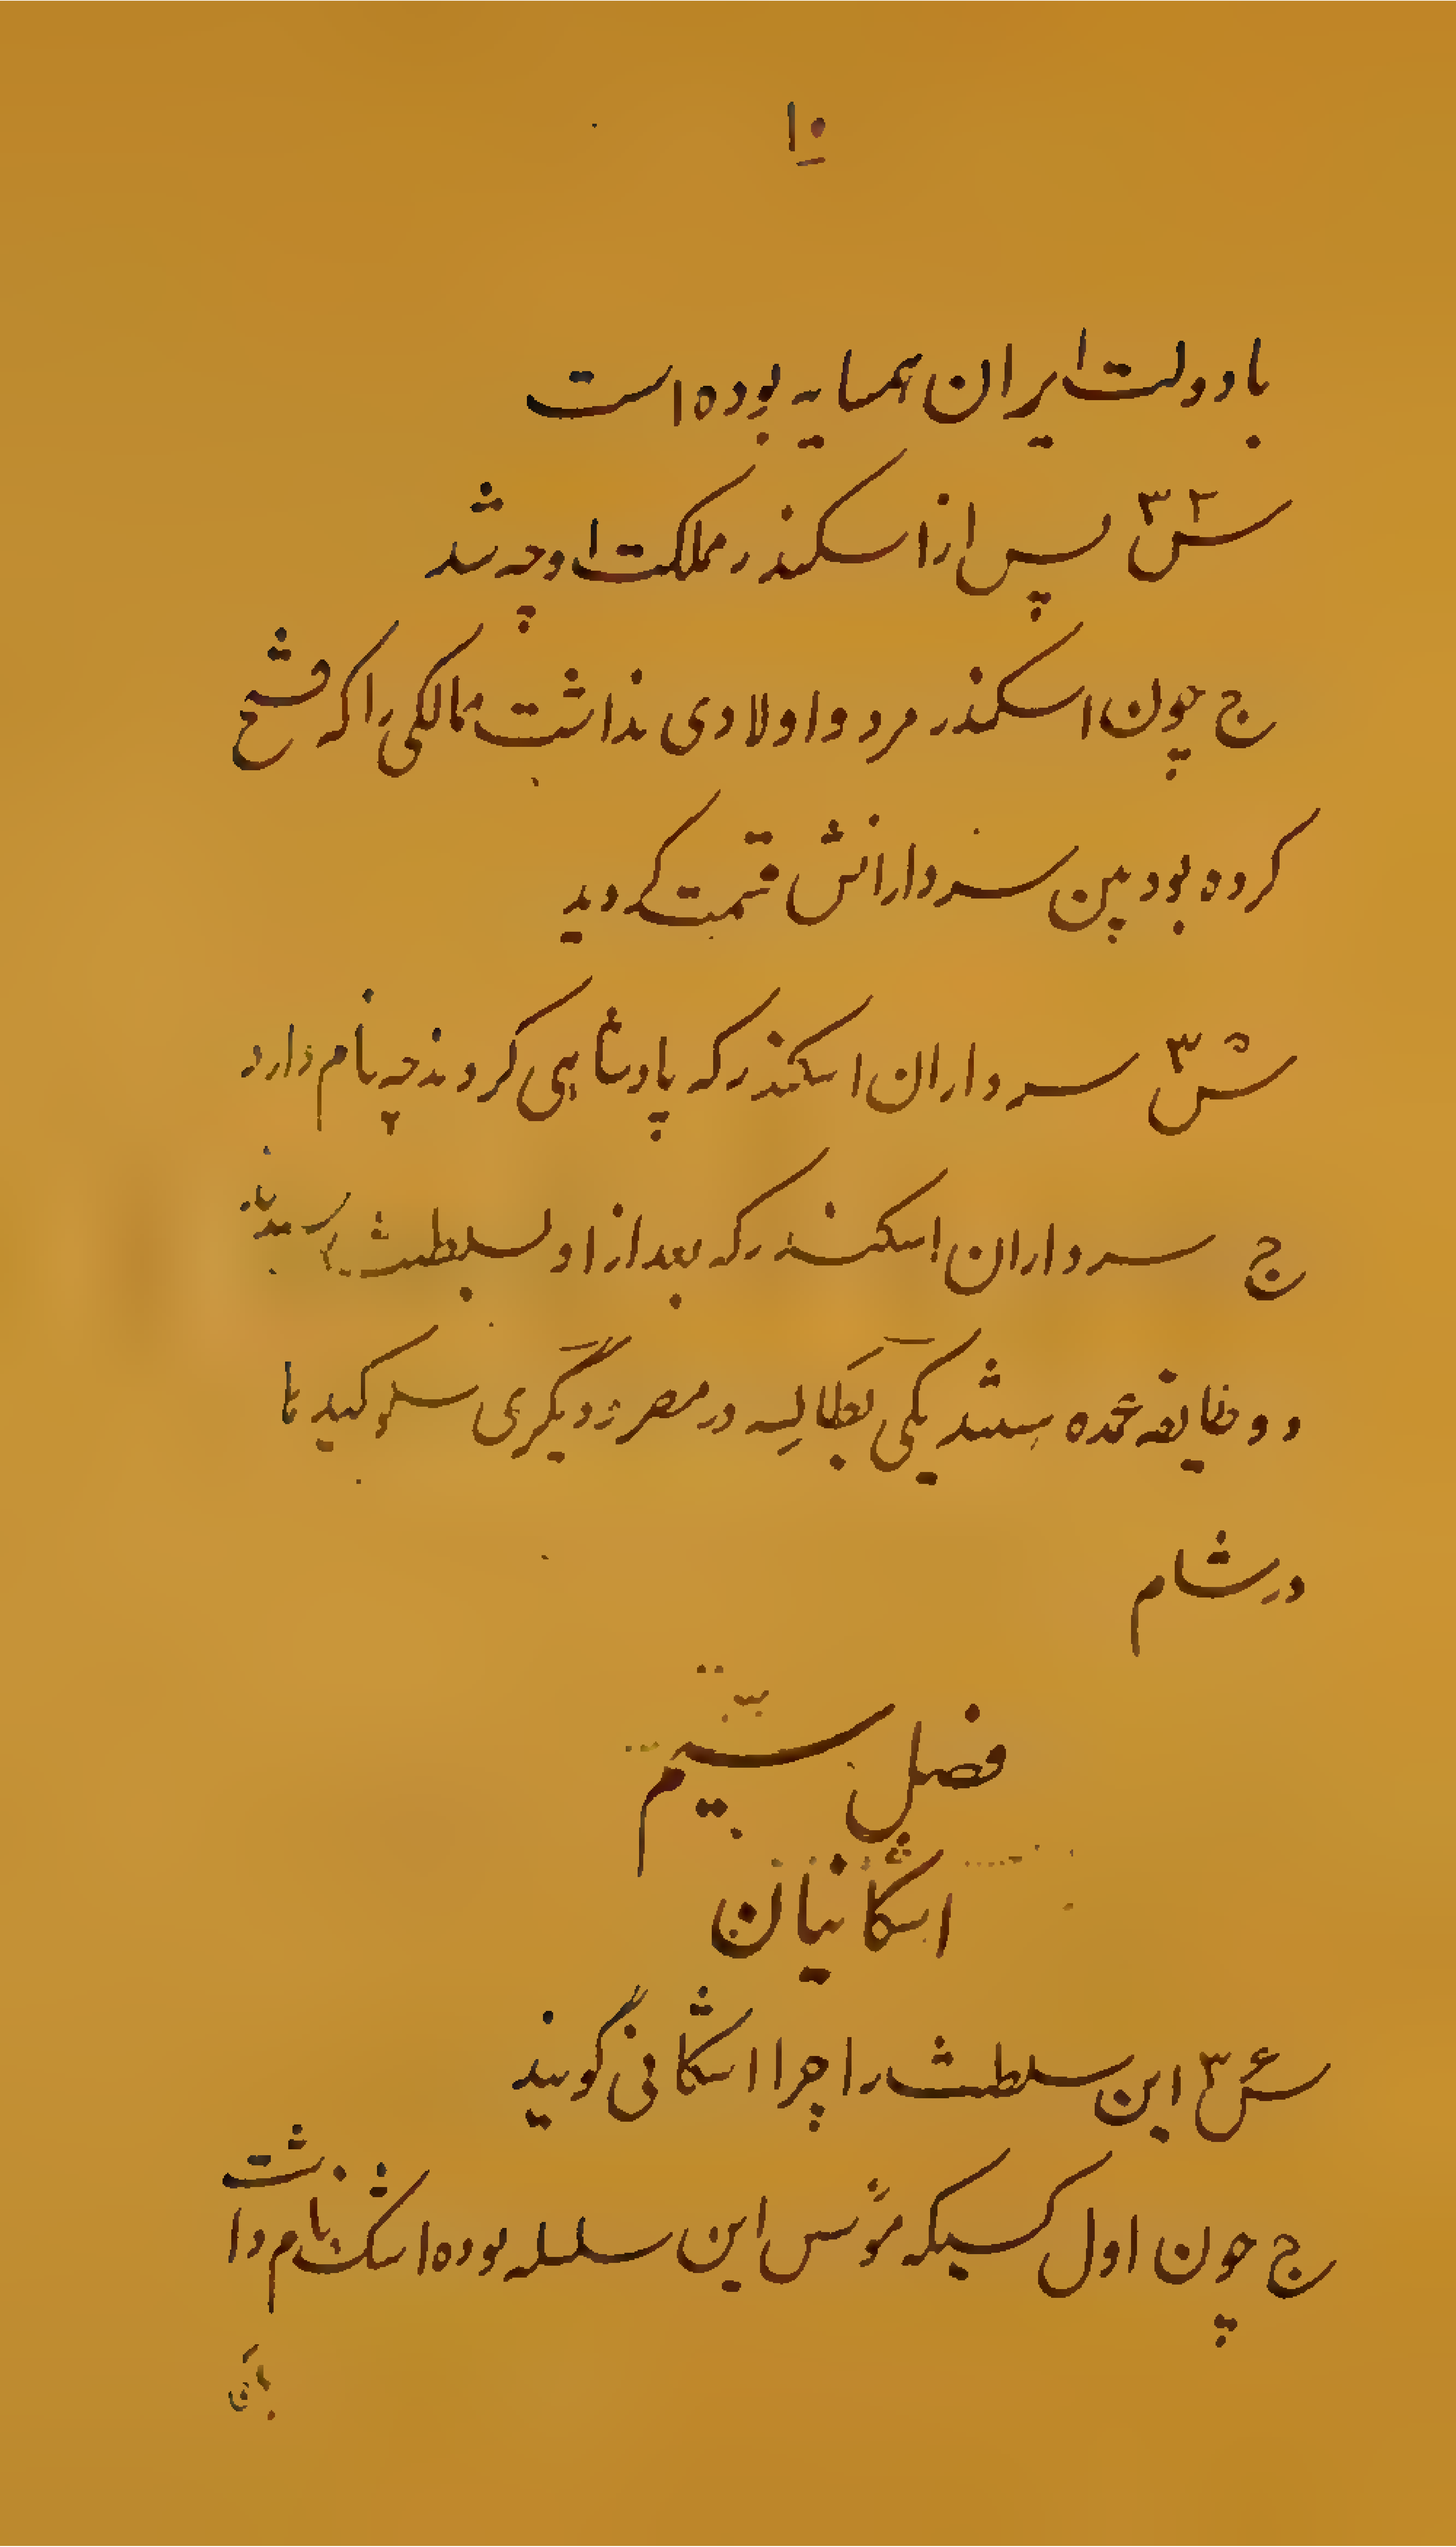 ۱۰
با دولت ایران همسایه بوده است
س ۳۴ پس از اسکندر مملکت او چه شد
ج چون اسکندر مرد و اولادی نداشت ممالکی را که فتح
کرده بود بین سردارانش قسمت گردید
س ۳۵ سرداران اسکندر که پادشاهی کردند چه نام دارد
ج سرداران اسکندر که بعد از او بسلطنت رسیدند
دو طایفه عمده هستند یکی بطالسه در مصر و دیگری سلوکیدها
در شام
فصل سیم
اشکانیان
س ۳۶ این سلطنت را چرا اشکانی گویند
ج چون اول کسیکه مؤسس این سلسله بوده اشک نام داشت